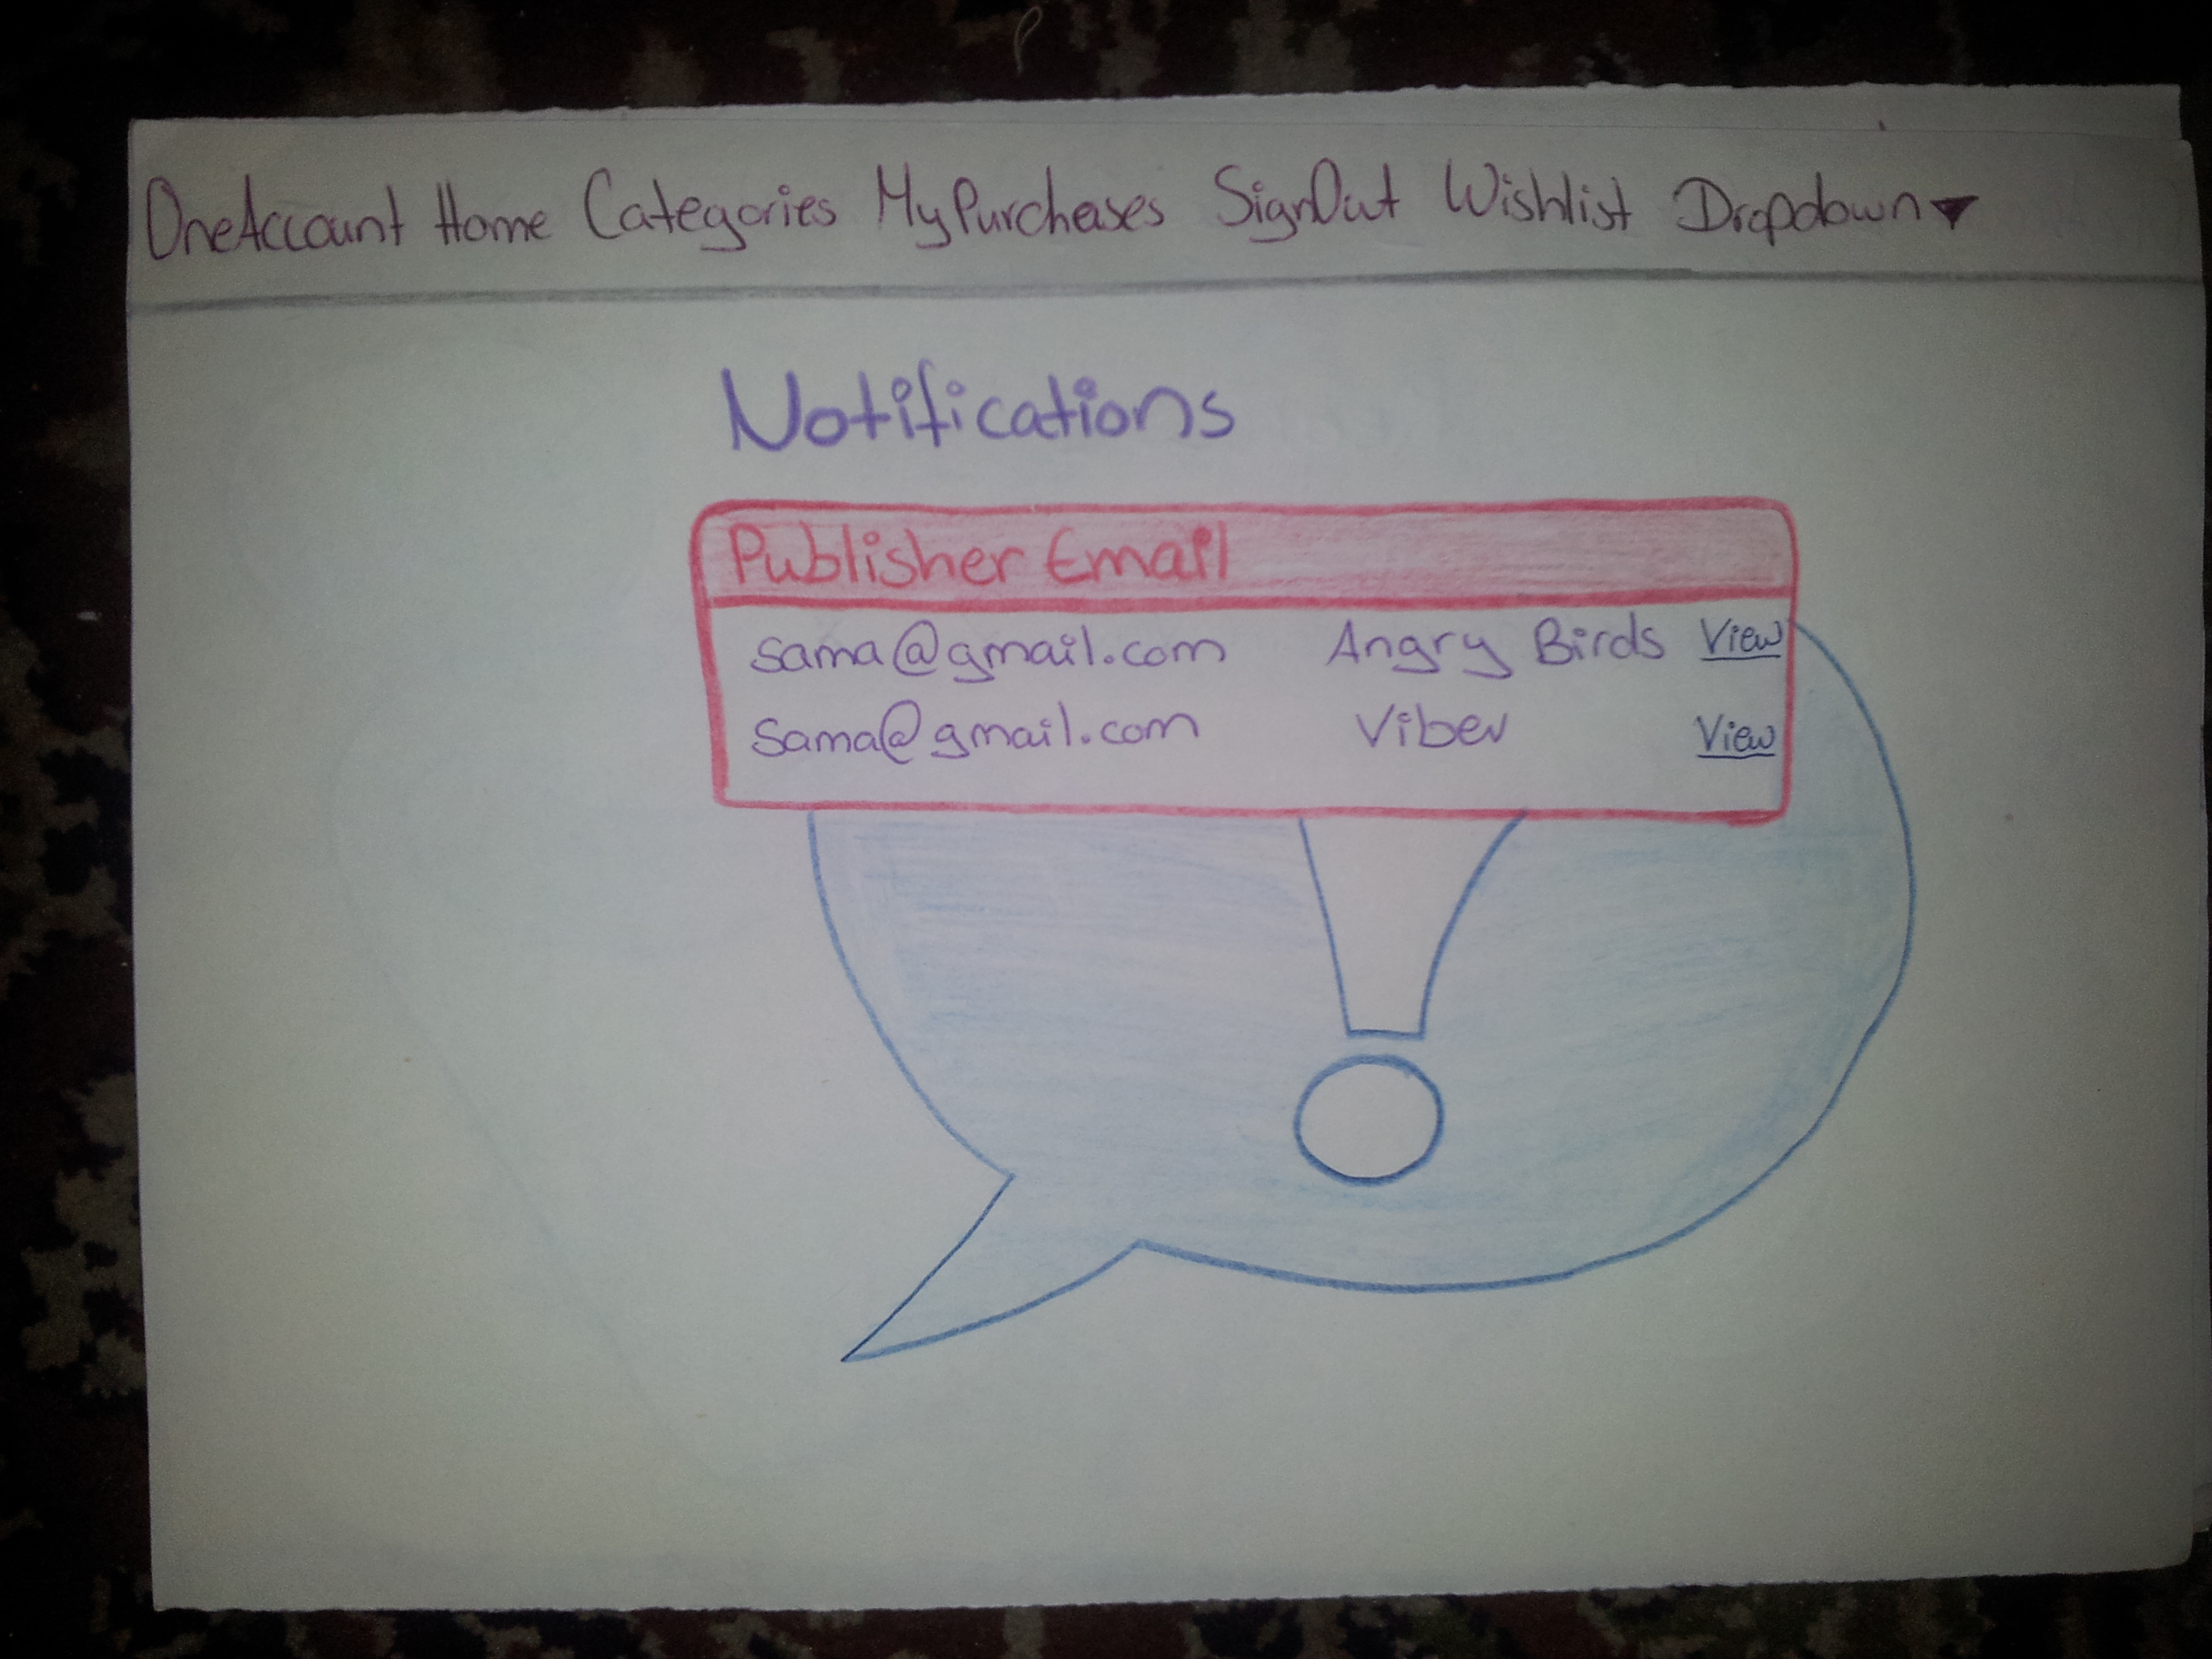 OneAccount Home Categories MyPurchases SignOut Wishlist Dropdown
Notifications
Publisher Email
sama@gmail.com Angry Birds View
sama@gmail.com Viber View